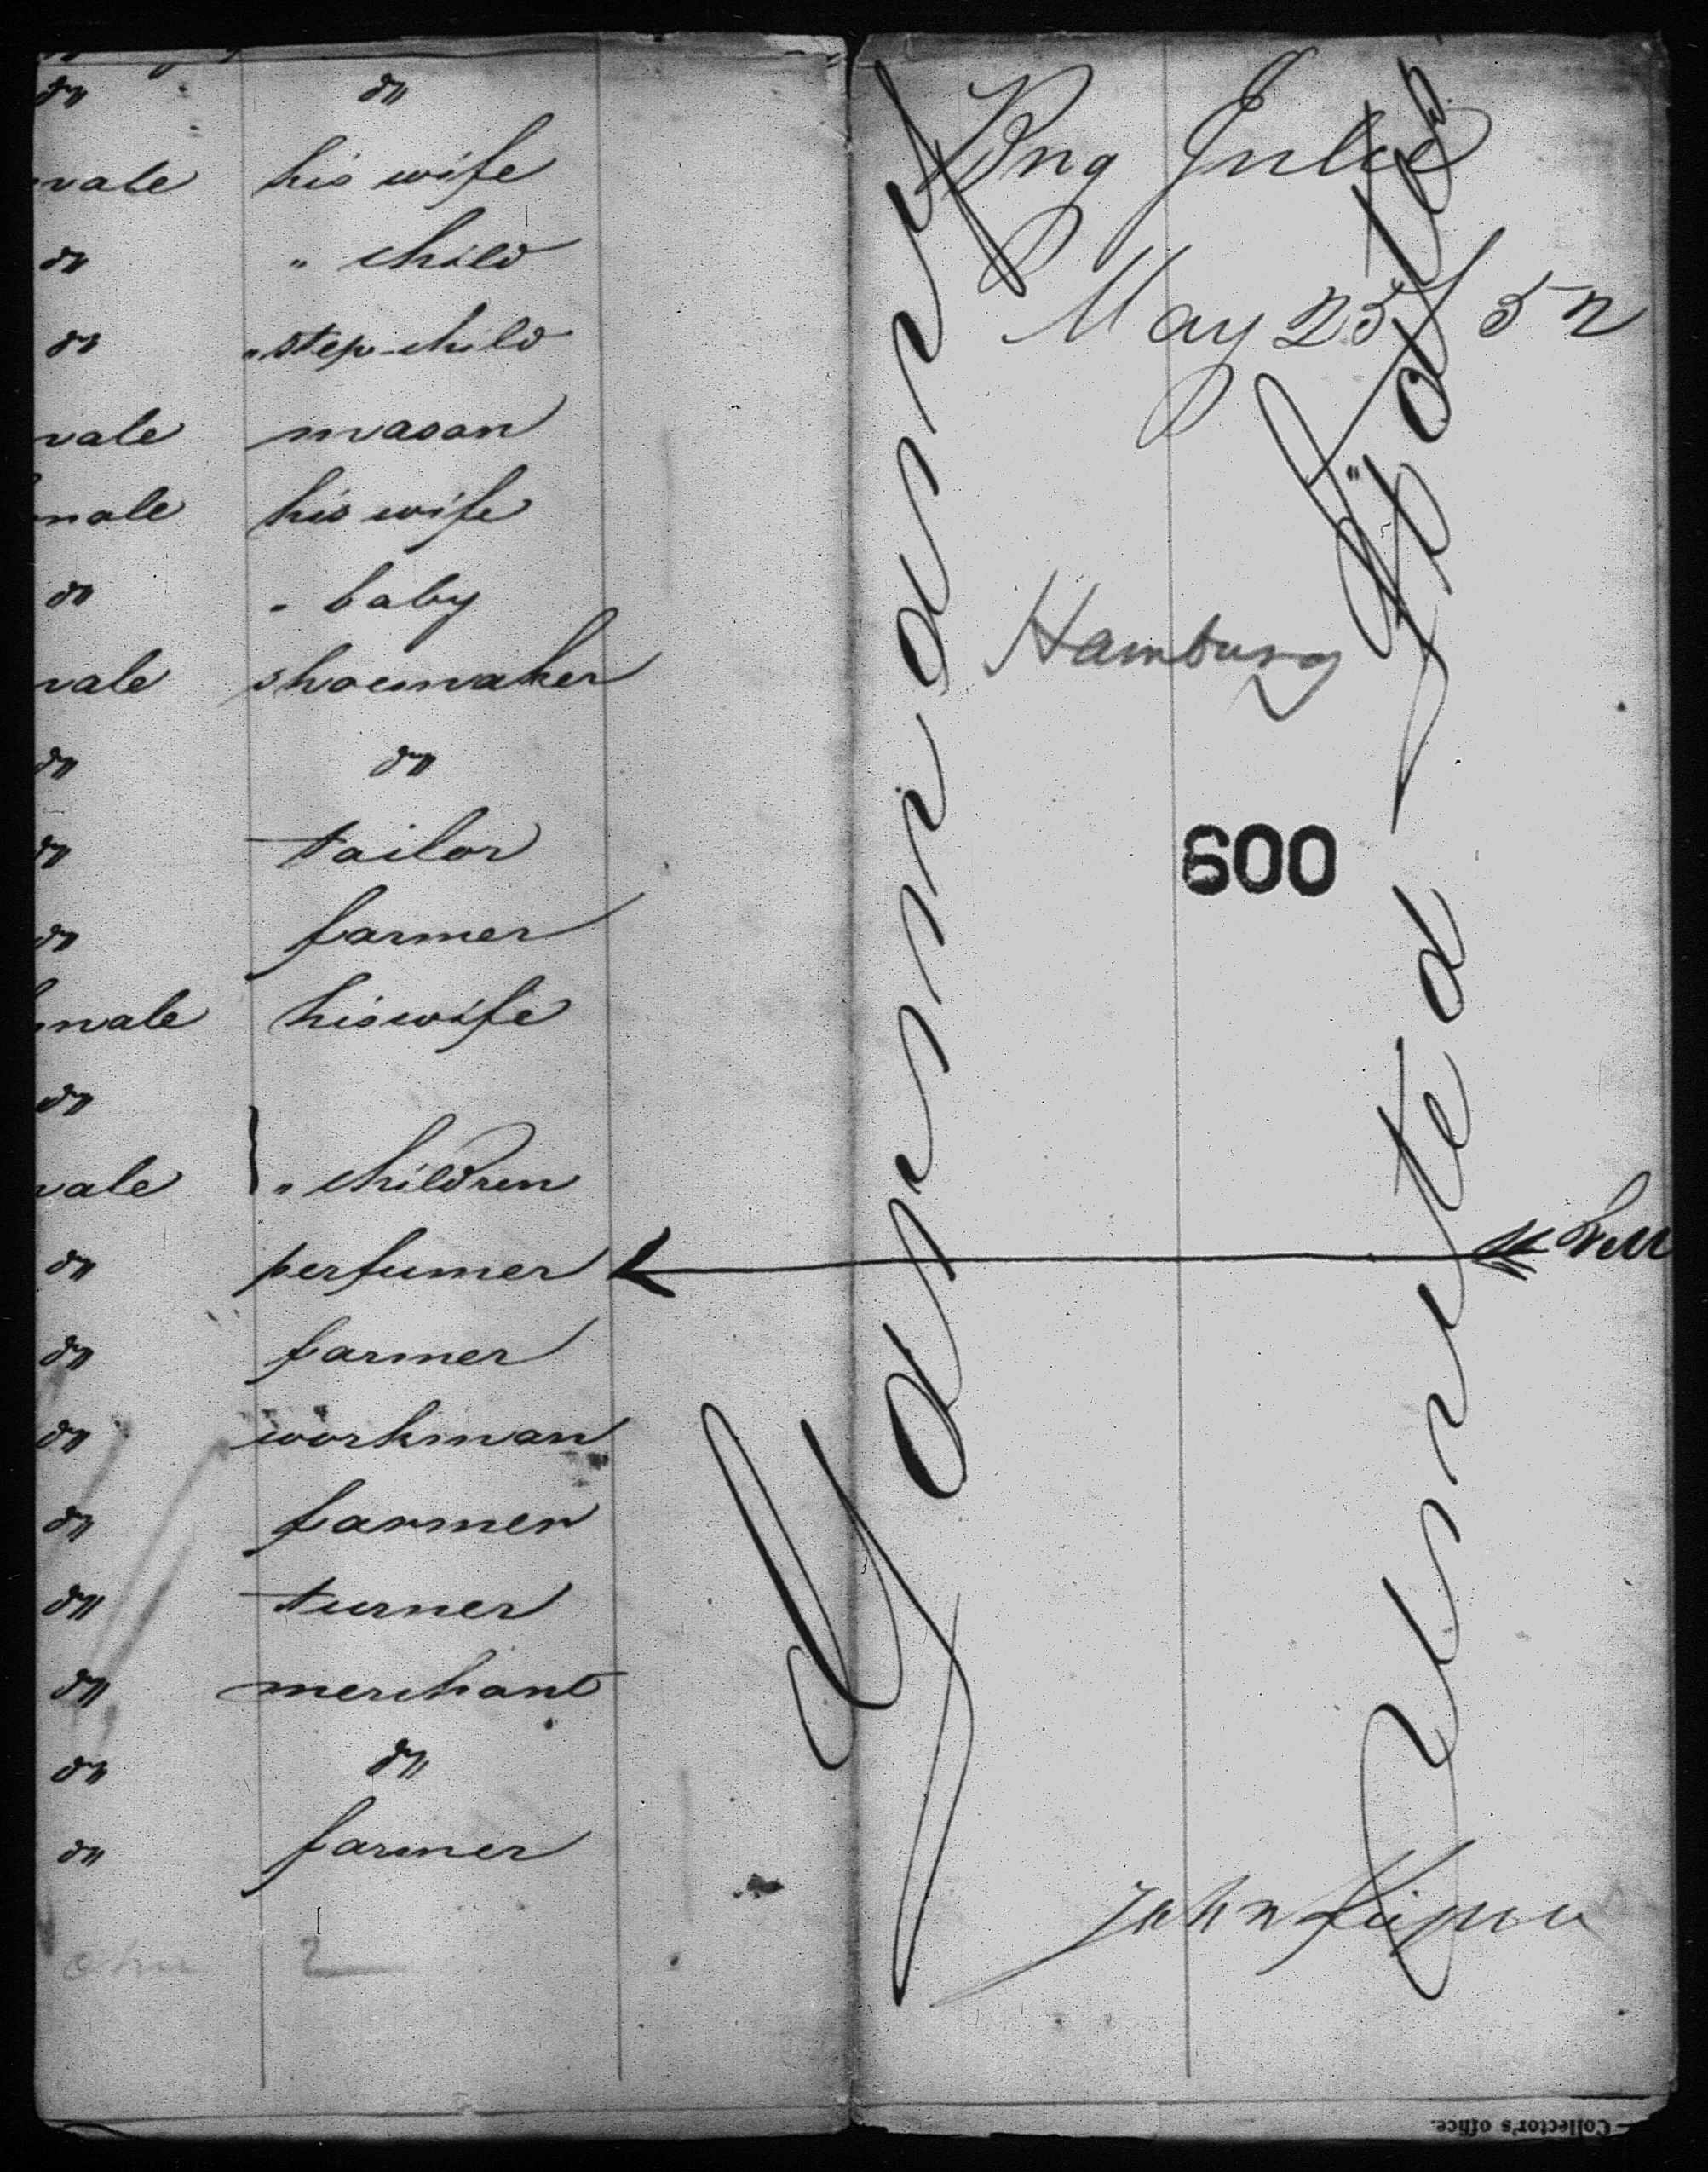 do do
male his wife
do " child
do " step-child
male mason
male his wife
do " baby
male shoemaker
do do
do tailor
do farmer
male his wife
do
male " children
do perfumer
do farmer
do workman
do farmer
do turner
do merchant
do do
farmer
do
2
Brig Julie
May 25 / 52
Hamburg
600
Germany
United States
John
Collector's office.